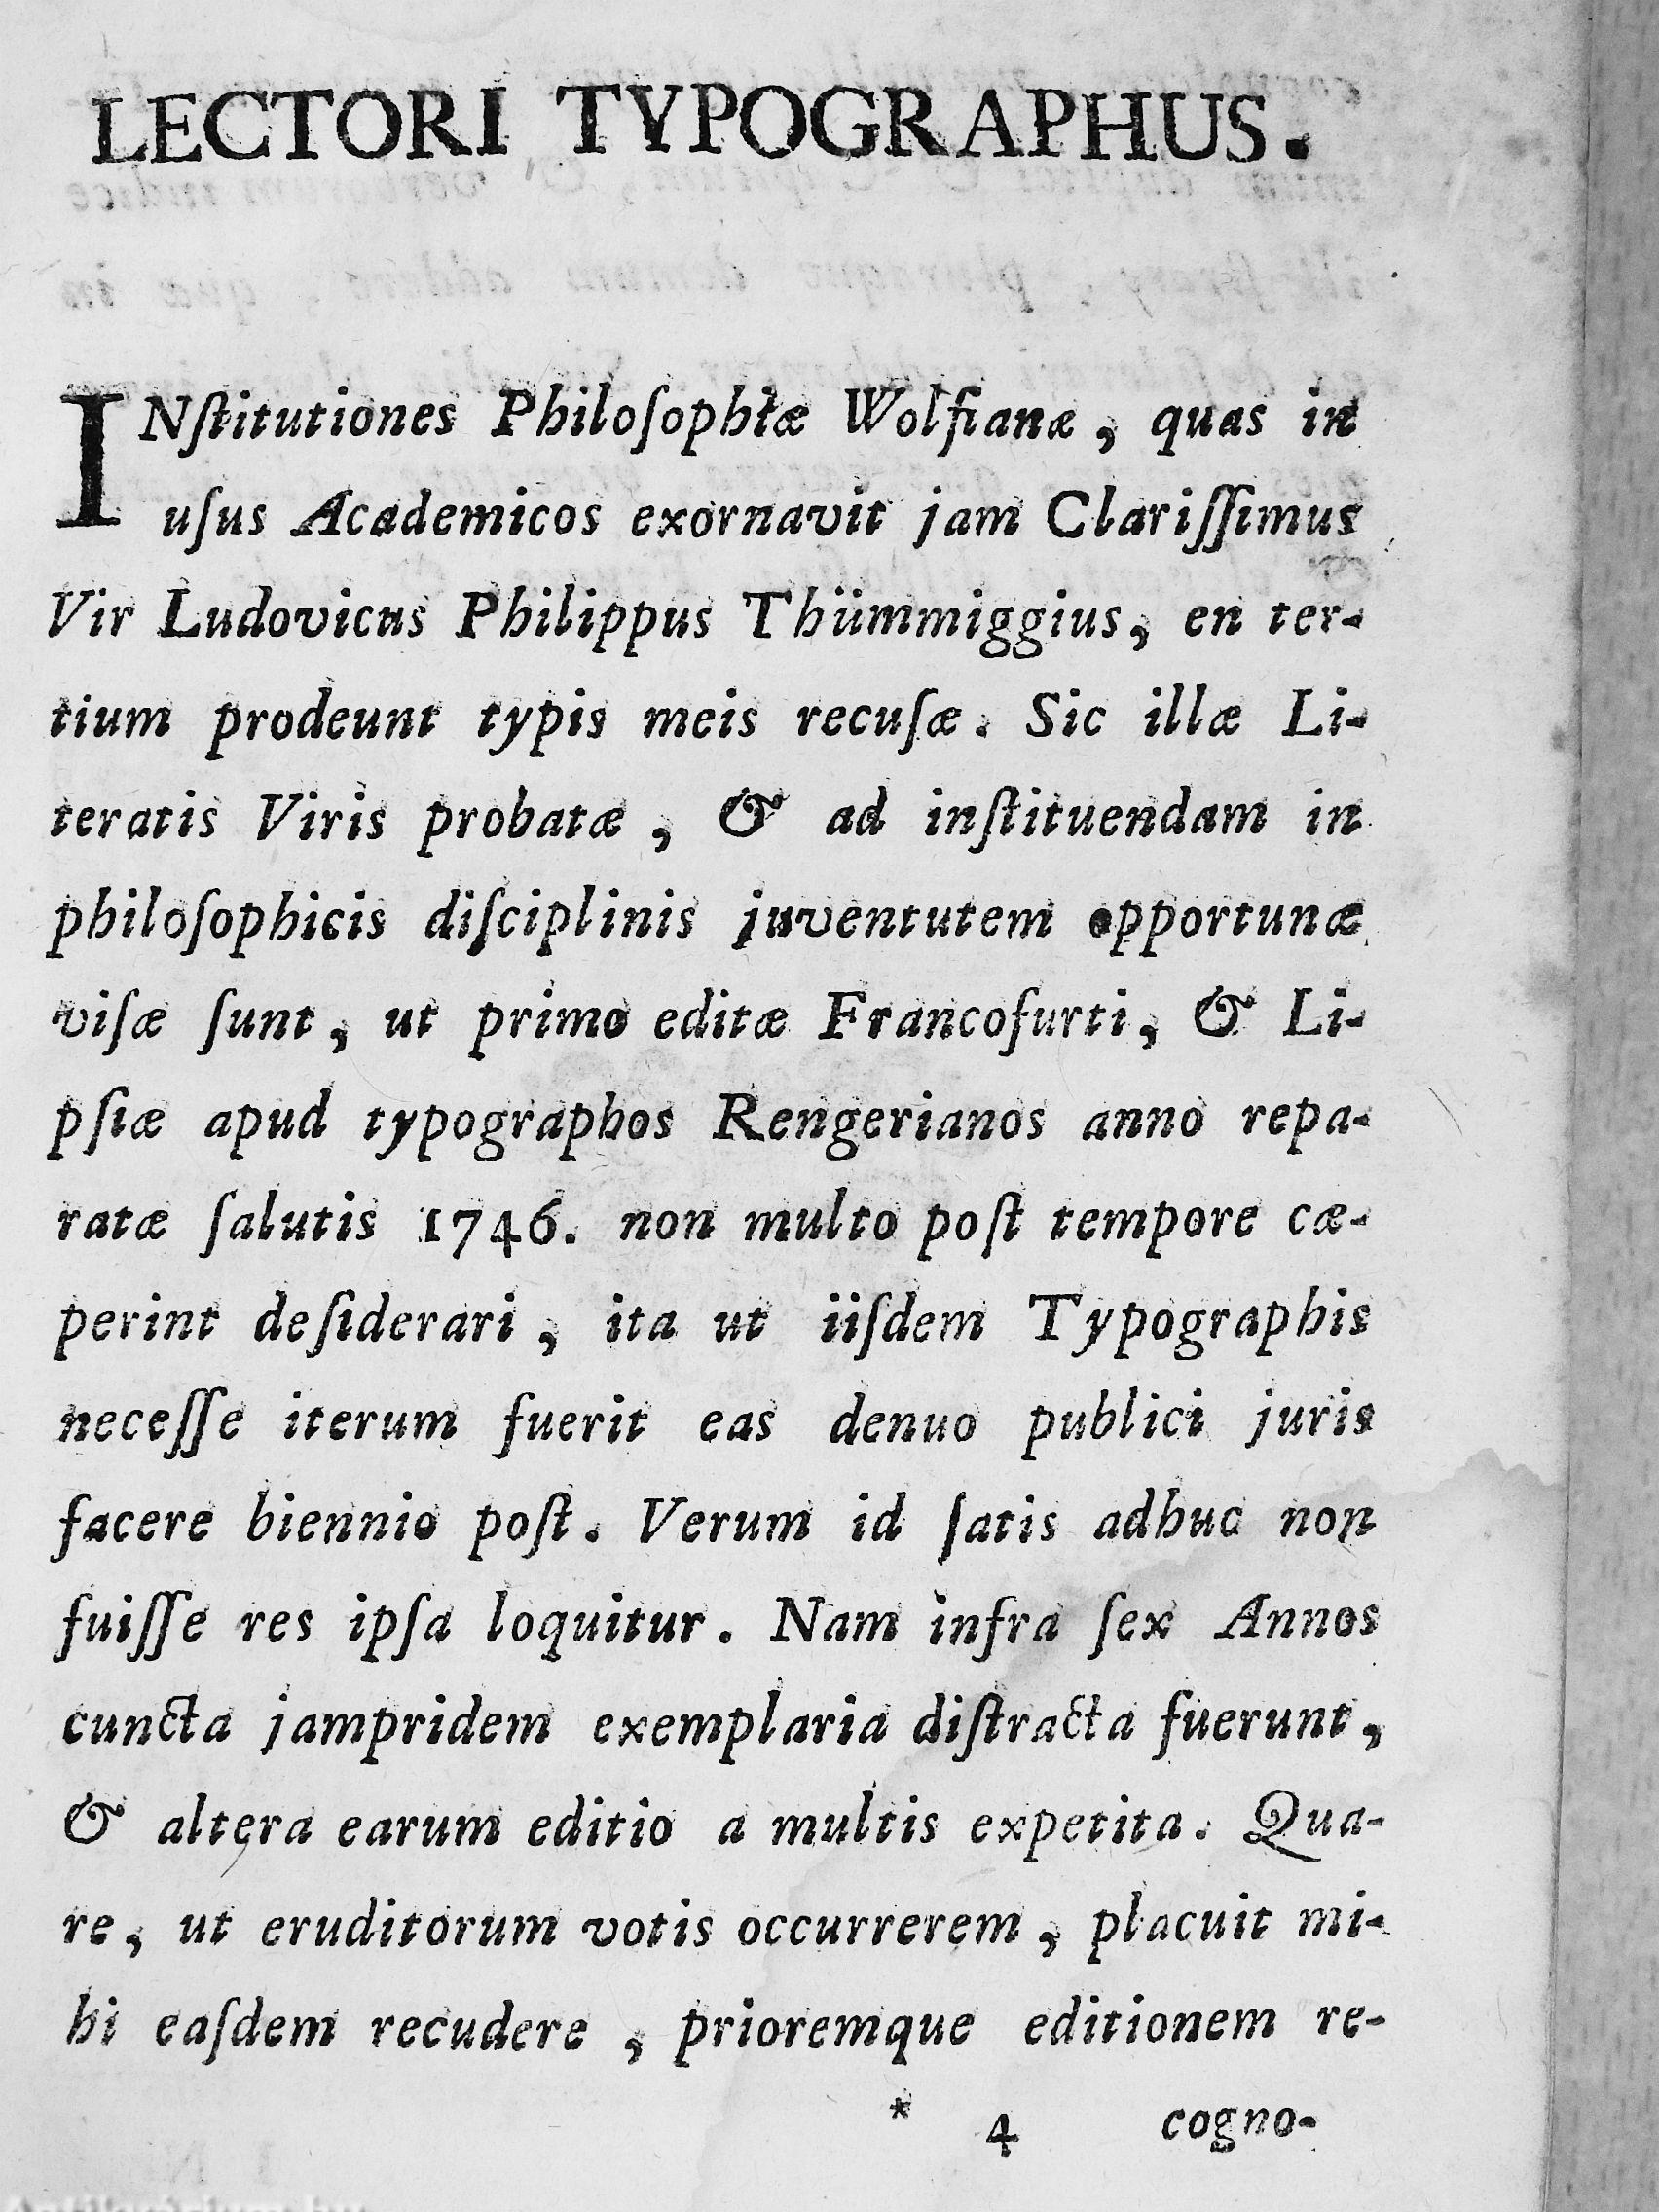 LECTORI TYPOGRAPHUS.
INſtitutiones Philoſophiæ Wolfianæ, quas in
uſus Academicos exornavit jam Clariſſimus
Vir Ludovicus Philippus Thümmiggius, en ter-
tium prodeunt typis meis recuſæ. Sic illæ Li-
teratis Viris probatæ, & ad inſtituendam in
philoſophicis diſciplinis juventutem opportunæ
viſæ ſunt, ut primo editæ Francofurti, & Li-
pſiæ apud typographos Rengerianos anno repa-
ratæ ſalutis 1746. non multo poſt tempore cæ-
perint deſiderari, ita ut iiſdem Typographis
neceſſe iterum fuerit eas denuo publici juris
facere biennio poſt. Verum id ſatis adhuc non
fuiſſe res ipſa loquitur. Nam infra ſex Annos
cuncta jampridem exemplaria diſtracta fuerunt,
& altera earum editio a multis expetita. Qua-
re, ut eruditorum votis occurrerem, placuit mi-
hi eaſdem recudere, prioremque editionem re-
* 4 cogno-